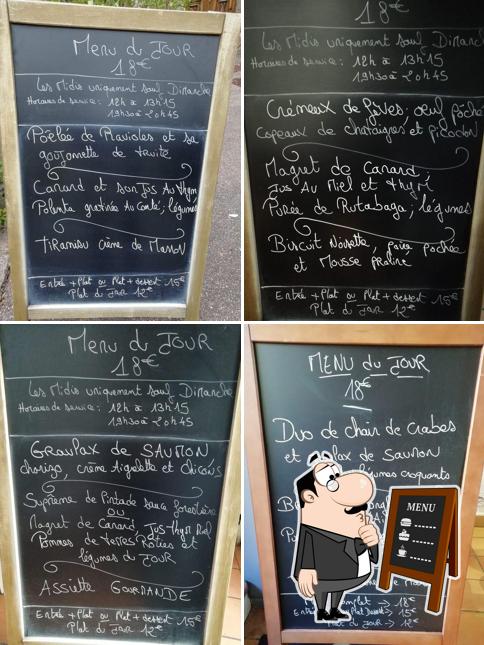 Menu du JOUR
18€
Les Midis uniquement sauf Dimanche
Horaires de service: 12h à 13h15
19h30 à 20h45
Poêlée de Ravioles et sa
goujonnette de truite
Canard et son Jus Au thym
Polenta gratinée Au Comté; légumes
Tiramisu crème de Marron
Entrée + Plat ou Plat + dessert 15€
Plat du Jour 12€
18€
Les Midis uniquement sauf Dimanc
Horaires de service: 12h à 13h15
19h30 à 20h45
Crémeux de Pyves; oeuf poché
Copeaux de chataignes et picodon
Magret de Canard;
Jus Au Miel et thym
Purée de Rutabaga; légumes
Biscuit Noisette, poire pochée
et Mousse praliné
Entrée + Plat ou Plat + dessert 15€
Plat du Jour 12€
Menu du JOUR
18€
Les Midis uniquement sauf Dimanche
Horaires de service: 12h à 13h15
19h30 à 20h45
Gravlax de SAUMON
chorizo, crème Aigrelette et
Suprème de Pintade sauce forestière
OU
Magret de Canard, Jus thym Miel
Pommes de terres Roties et
légumes du JOUR
Assiette GOURMANDE
Entrée + Plat ou Plat + dessert 15€
Plat du Jour 12€
MENU du JOUR
18€
Duo de chair de crabes
et lax de Saumon
légumes croquants
MENU
18€
15€
Plat du Jour → 12€